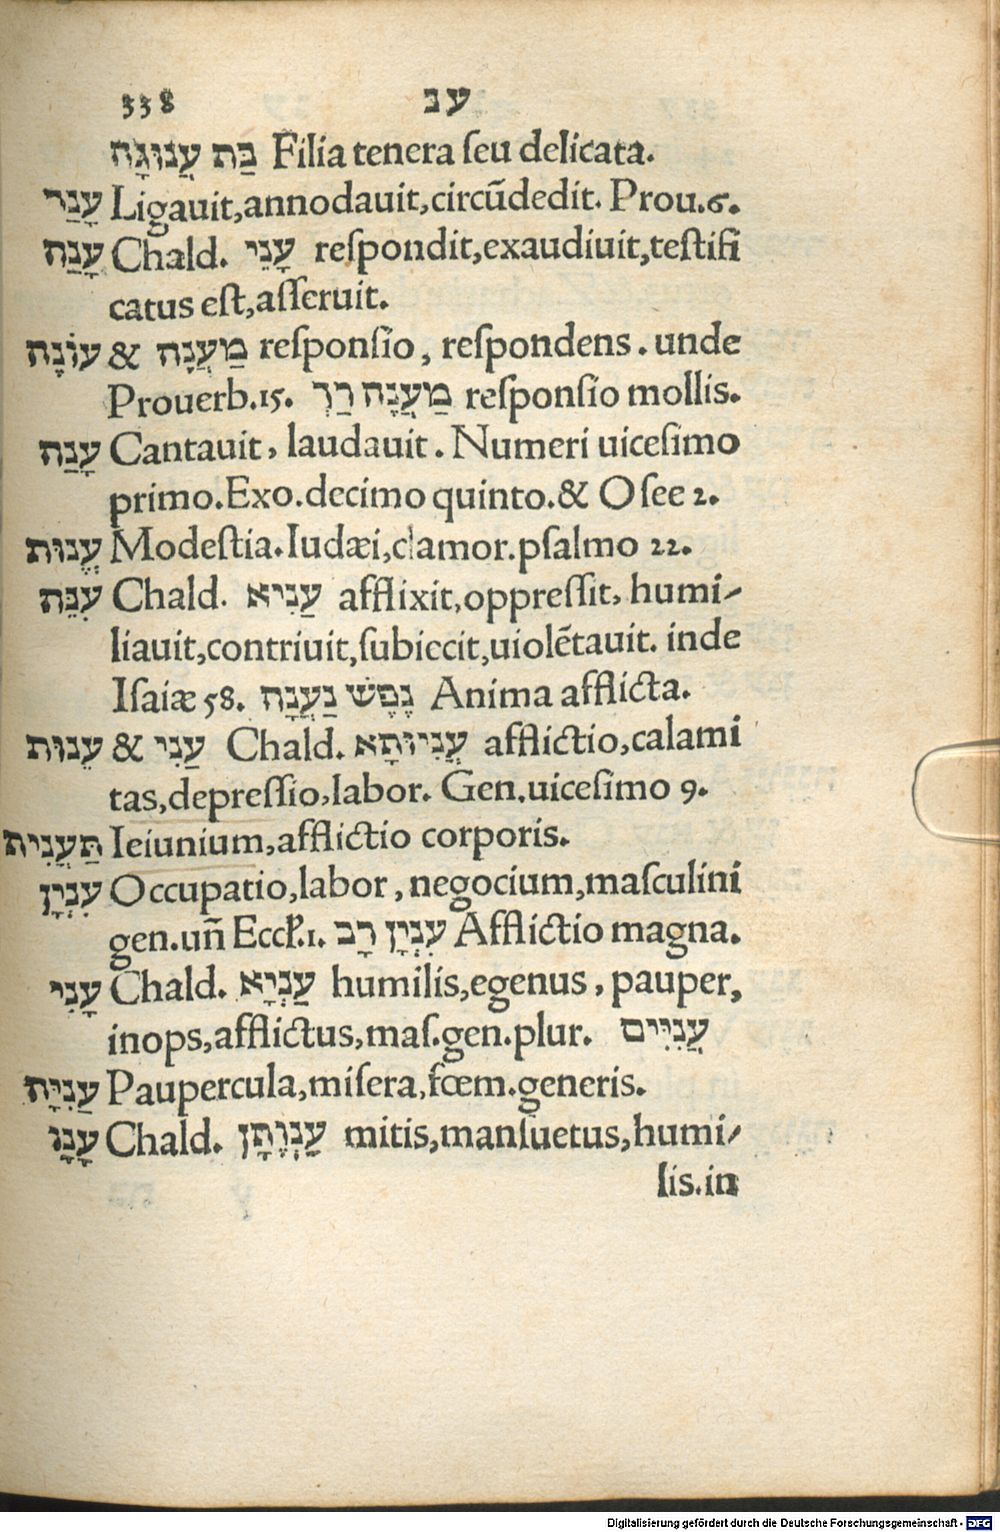 338 ענ
בַּת עֲנוּגָּה Filia tenera ſeu delicata.
עָנַד Ligauit,annodauit,circũdedit. Prou.6.
עָנָה Chald. עָנֵי reſpondit,exaudiuit,teſtifi
catus eſt,aſſeruit.
עוֹנֶה & מַעֲנֶה reſponſio, reſpondens. unde
Prouerb.15. מַעֲנֶה רַךְ reſponſio mollis.
עָנָה Cantauit, laudauit. Numeri uiceſimo
primo.Exo.decimo quinto.& Oſee 2.
עֱנוּת Modeſtia.Iudæi,clamor.pſalmo 22.
עִנָּה Chald. עַנִּיא afflixit,oppreſſit, humi-
liauit,contriuit,ſubiecit,uiolẽtauit. inde
Iſaiæ 58. נֶפֶשׁ נַעֲנָה Anima afflicta.
עֵנוּת & עַנִּי Chald. עֲנִיוּתָא afflictio,calami
tas,depreſſio,labor. Gen.uiceſimo 9.
תַּעֲנִית Ieiunium,afflictio corporis.
עִנְיָן Occupatio,labor, negocium,maſculini
gen.uñ Eccl.1. עִנְיָן רָב Afflictio magna.
עָנִי Chald. עַנְיָא humilis,egenus, pauper,
inops,afflictus,maſ.gen.plur. עֲנִיִּים
עַנִיָּה Paupercula,miſera,fœm.generis.
עָנָו Chald. עַנְוְתָן mitis,manſuetus,humi-
lis.in
Digitalisierung gefördert durch die Deutsche Forschungsgemeinschaft - DFG